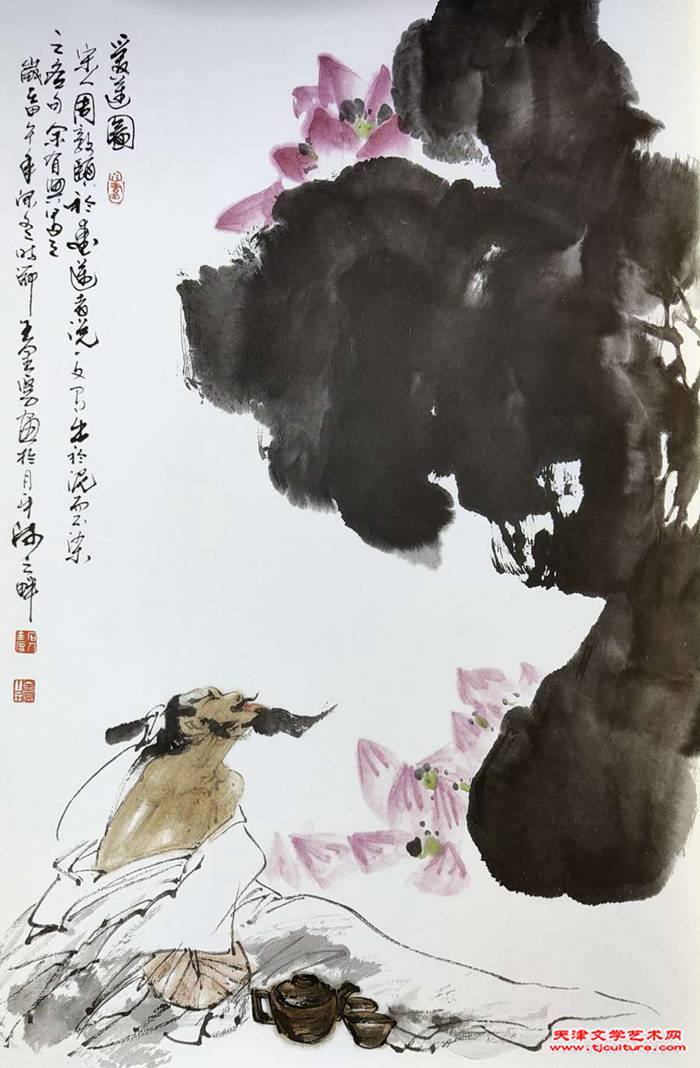 爱莲圖
宋人周敦頤於爱莲者说一文 出於泥而不染
之名句余有興写之
歲 午年深冬时節 王金厚画於月牙河之畔
天津文学艺术网
www.tjculture.com